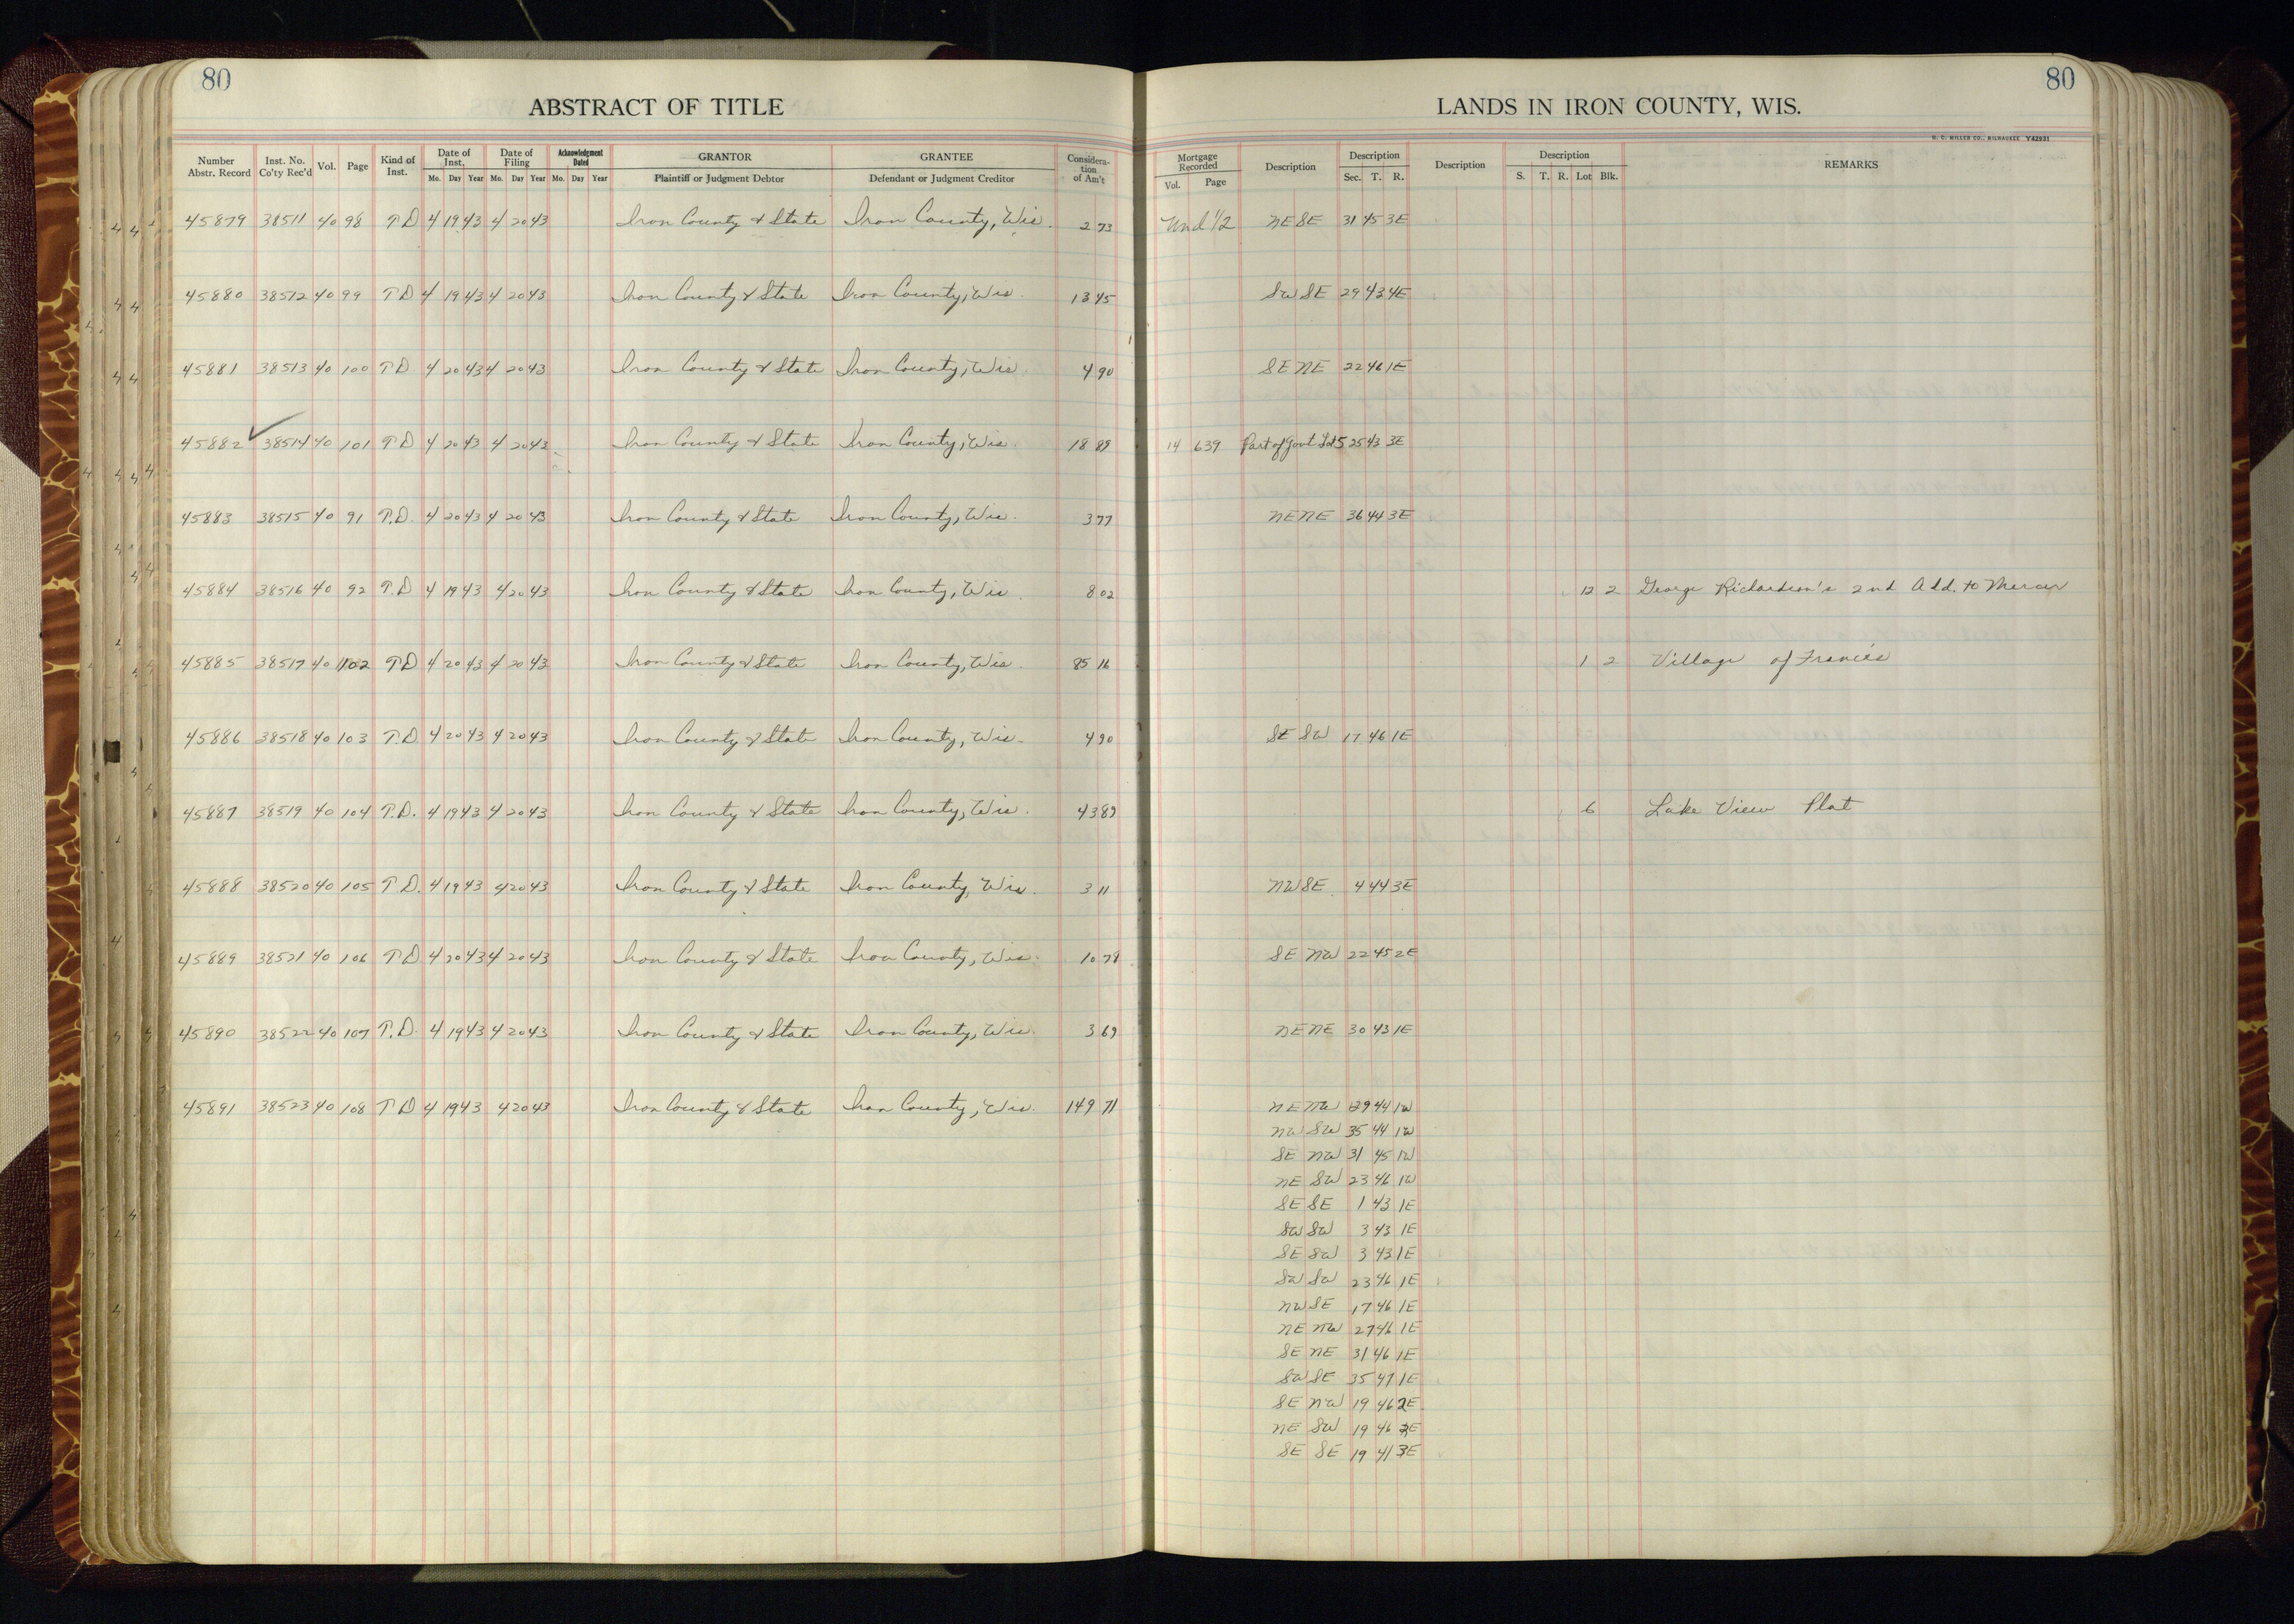 80
80
ABSTRACT OF TITLE
LANDS IN IRON COUNTY, WIS.
H. C. MILLER CO., MILWAUKEE Y42931
Number Abstr. Record Inst. No. Co'ty Rec'd Vol. Page Kind of Inst. Date of Inst. Mo. Day Year Date of Filing Mo. Day Year Acknowledgment Dated Mo. Day Year GRANTOR Plaintiff or Judgment Debtor GRANTEE Defendant or Judgment Creditor Considera-tion of Am't Mortgage Recorded Vol. Page Description Description Sec. T. R. Description Description S. T. R. Lot Blk. REMARKS
45879 38511 40 98 T D 4 19 43 4 20 43 Iron County & State Iron County, Wis. 2 73 Und 1/2 NE SE 31 45 3E
45880 38512 40 99 T D 4 19 43 4 20 43 Iron County & State Iron County, Wis. 13 45 SW SE 29 43 4E
45881 38513 40 100 T D 4 20 43 4 20 43 Iron County & State Iron County, Wis. 4 90 SE NE 22 46 1E
45882 38514 40 101 T D 4 20 43 4 20 43 Iron County & State Iron County, Wis. 18 89 14 639 Part of Govt Lot 5 25 43 3E
45883 38515 40 91 T.D. 4 20 43 4 20 43 Iron County & State Iron County, Wis. 3 77 NE NE 36 44 3E
45884 38516 40 92 T.D 4 19 43 4 20 43 Iron County & State Iron County, Wis. 8 02 12 2 George Richardson's 2nd Add. to Mercer
45885 38517 40 102 T D 4 20 43 4 20 43 Iron County & State Iron County, Wis. 85 16 1 2 Village of Francis
45886 38518 40 103 T.D. 4 20 43 4 20 43 Iron County & State Iron County, Wis. 4 90 SE SW 17 46 1E
45887 38519 40 104 T.D. 4 19 43 4 20 43 Iron County & State Iron County, Wis. 43 89 6 Lake View Plat
45888 38520 40 105 T D. 4 19 43 4 20 43 Iron County & State Iron County, Wis. 3 11 NW SE 4 44 3E
45889 38521 40 106 T D 4 20 43 4 20 43 Iron County & State Iron County, Wis. 10 79 SE NW 22 45 2E
45890 38522 40 107 T.D. 4 19 43 4 20 43 Iron County & State Iron County, Wis. 3 69 NE NE 30 43 1E
45891 38523 40 108 T D 4 19 43 4 20 43 Iron County & State Iron County, Wis. 149 71 NE NW 29 44 1W
NW SW 35 44 1W
SE NW 31 45 1W
NE SW 23 46 1W
SE SE 1 43 1E
SW SW 3 43 1E
SE SW 3 43 1E
SW SW 23 46 1E
NW SE 17 46 1E
NE NW 27 46 1E
SE NE 31 46 1E
SW SE 35 47 1E
SE NW 19 46 2E
NE SW 19 46 2E
SE SE 19 41 3E